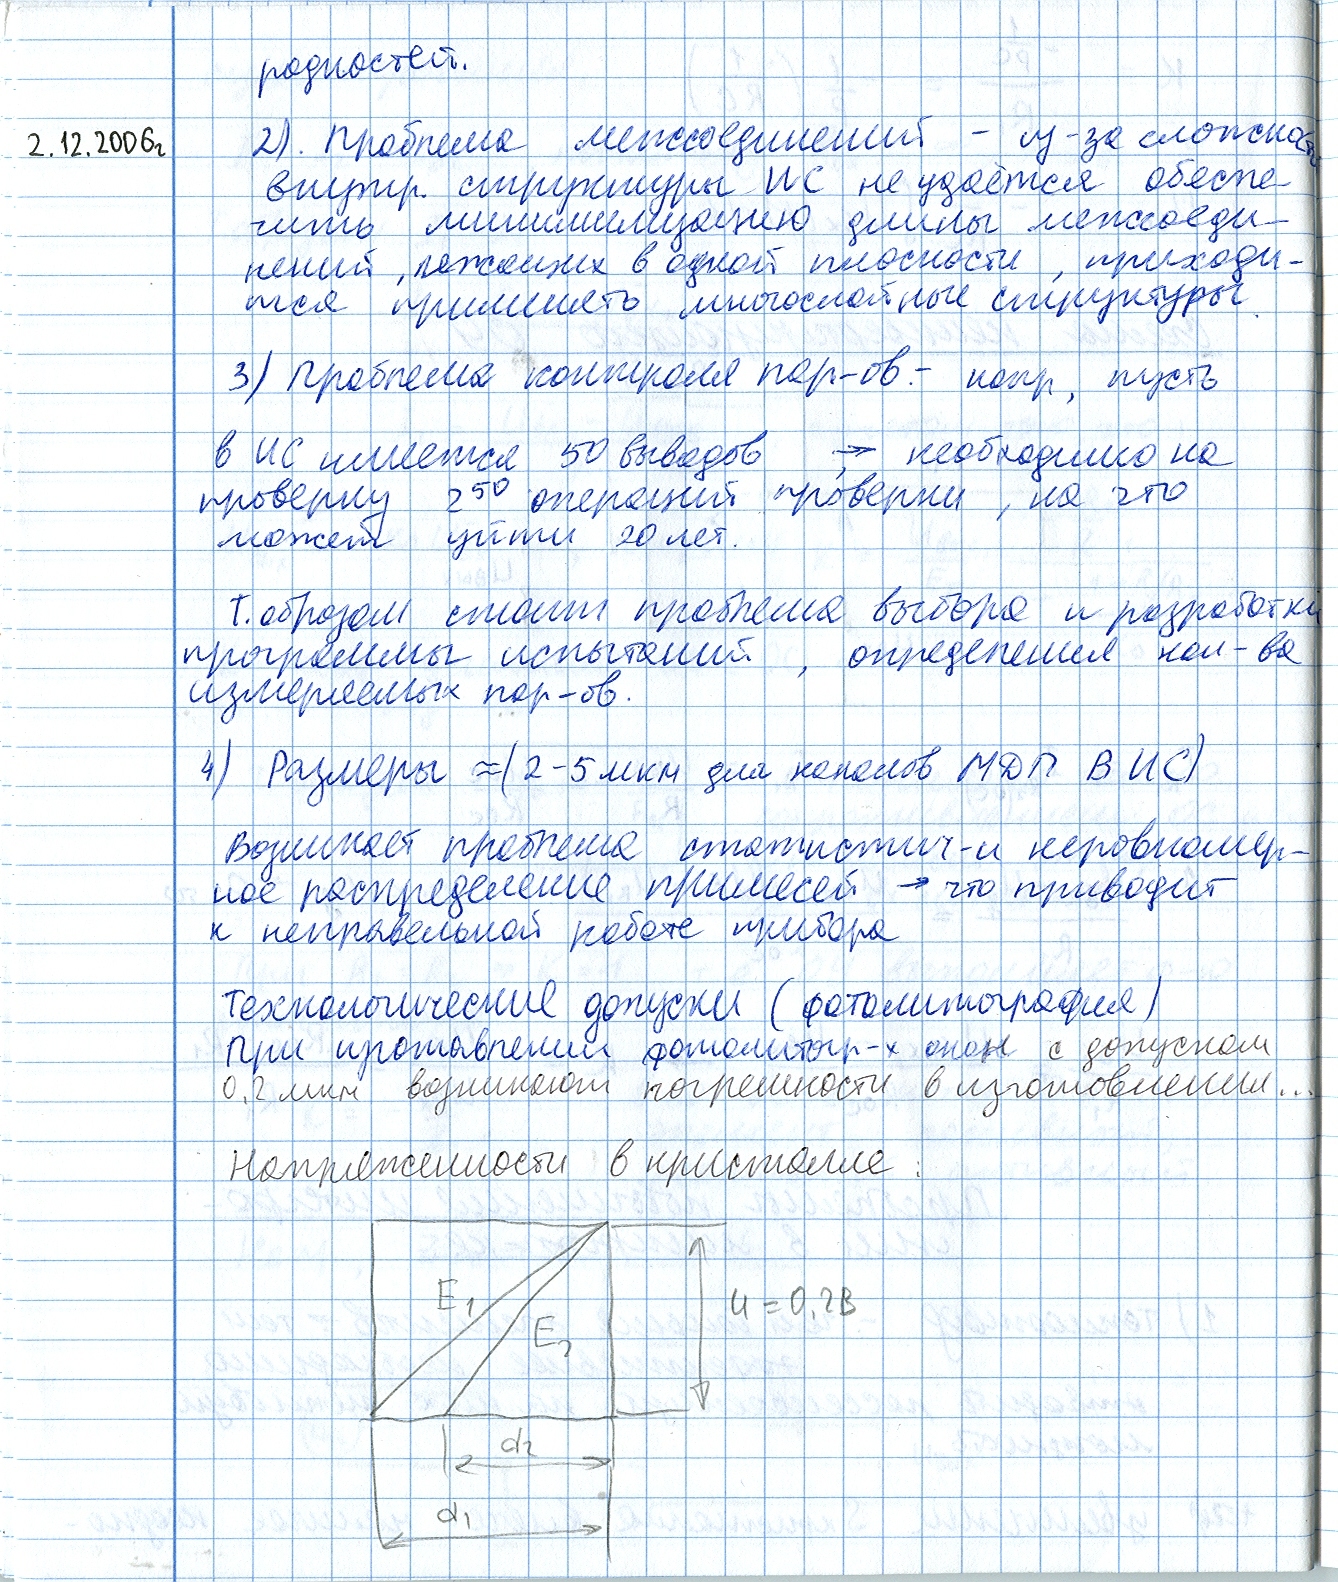 родностей.
2.12.2006г
2). Проблема межсоединений - из-за сложность
внутр. структуры ИС не удаётся обеспе-
чить минимилизацию длины межсоеди-
нений, лежащих в одной плоскости, приходи-
тся применять многослойные структуры.
3) Проблема контроля пар-ов. - напр, пусть
в ИС имеется 50 выводов, → необходимо на
проверку 2⁵⁰ операций проверки, на что
может уйти 20 лет.
Т.образом стоит проблема выбора и разработки
программы испытаний, определения кол-ва
измеряемых пар-ов.
4) Размеры ≈(2-5 мкм для каналов МДП В ИС)
Возникает проблема статистич-и неравномер-
ное распределение примесей → что приводит
к неправельной работе прибора
Технологические допуски (фотолитография)
При протравлении фотолитогр-х окон с допуском
0,2 мкм возникают погрешности в изготовлении...
Напряженности в кристалле:
E₁
E₂
U = 0,2В
d₂
d₁